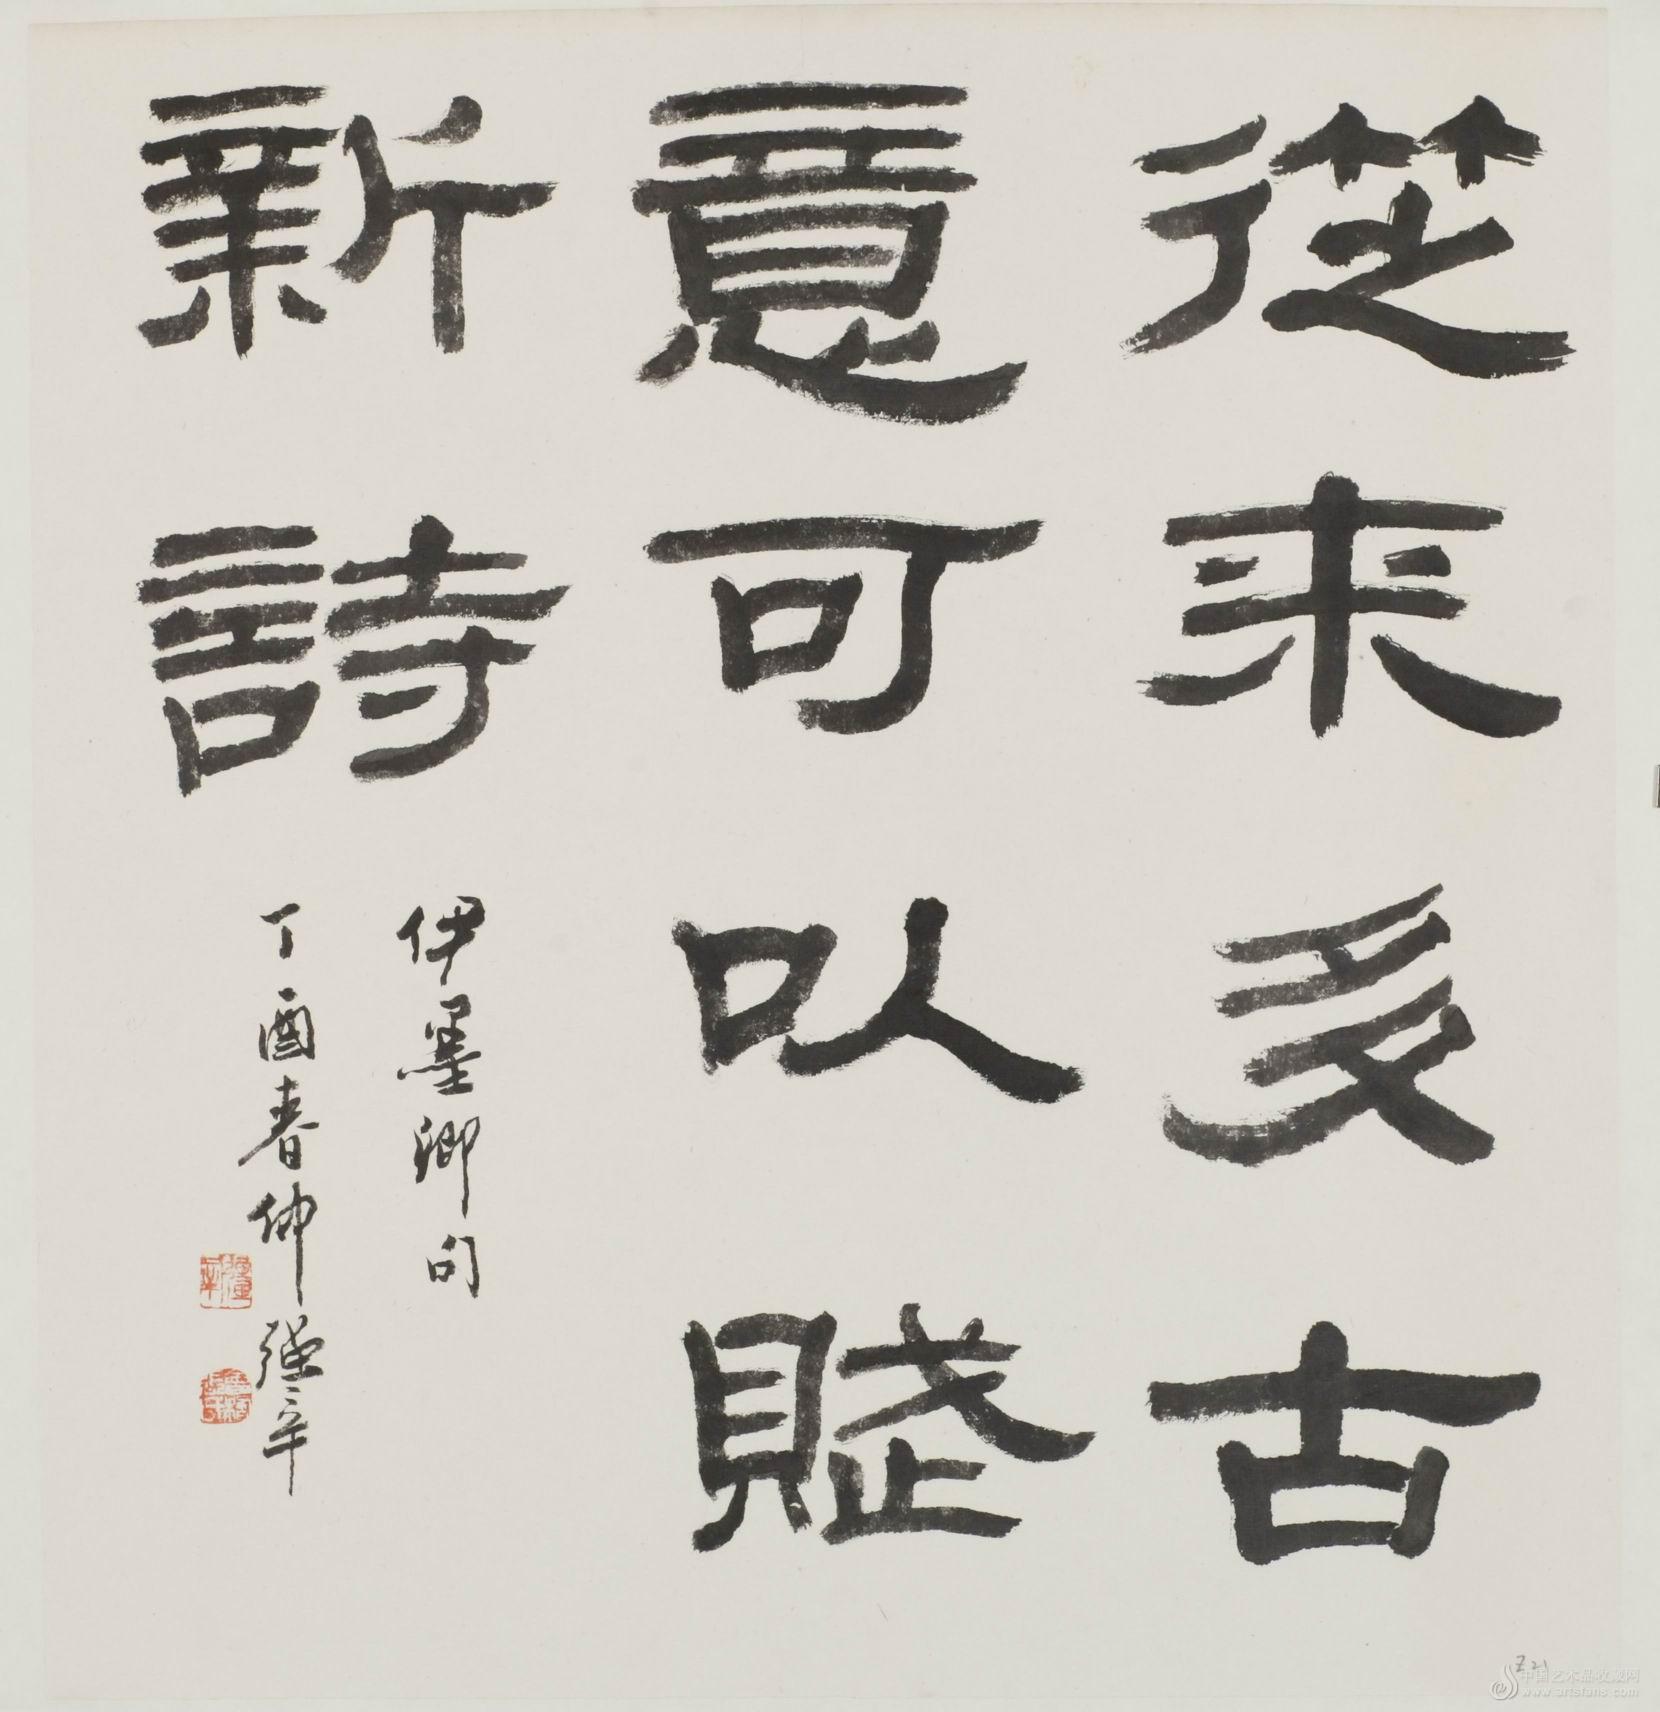 從来多古
意可以賦
新詩
伊墨卿句
丁酉春仲強辛
Z21
中国艺术品收藏网
www.artsfans.com